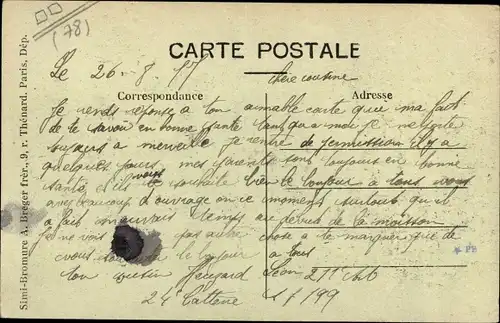 (78)
CARTE POSTALE
Le 26-8-17
chère cousine
Correspondance
Adresse
Je rends réponse a ton aimable carte que ma fait
de te savoir en bonne santé tant qua moi je
toujours a merveille je rentre de permission il y a
quelques jours mes parents sont toujours en bonne
santé ils vous souhaite bien le bonjour a tous vous
avez beaucoup d'ouvrage en ce moment surtout qu'il
a fait mauvais temps au début de la moisson
Je ne vois pas autre chose a te marquer que de
vous le bonjour a tous
ton cousin Léon
24e Batterie
Simi-Bromure A. Breger frèr., 9, r. Thénard. Paris. Dép.